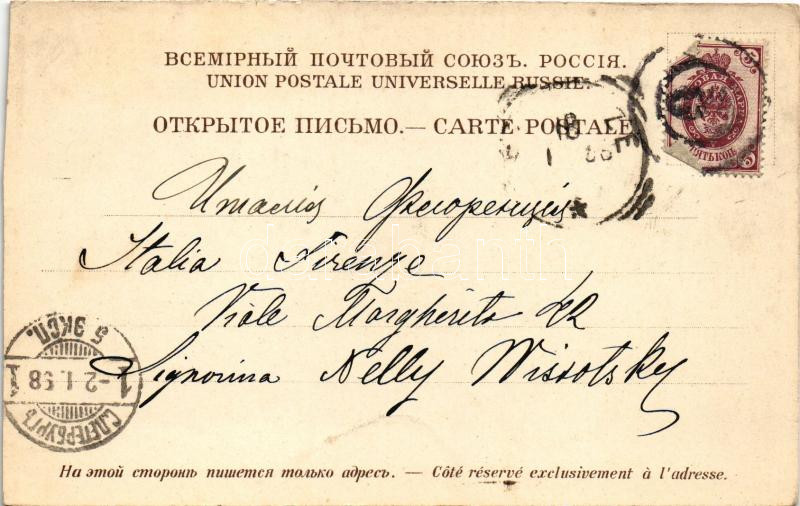 ВСЕМІРНЫЙ ПОЧТОВЫЙ СОЮЗЪ. РОССІЯ.
UNION POSTALE UNIVERSELLE RUSSIE.
ОТКРЫТОЕ ПИСЬМО. — CARTE POSTALE
ПЯТЬ КОП.
5
18
1
Италія Флоренція
Italia Firenze
Viale Margherita 42
Signorina Nelly Wissotsky
5 ЭКСП.
1 -2.1.98 1
С.ПЕТЕРБУРГЪ
На этой сторонѣ пишется только адресъ. — Côté réservé exclusivement à l'adresse.